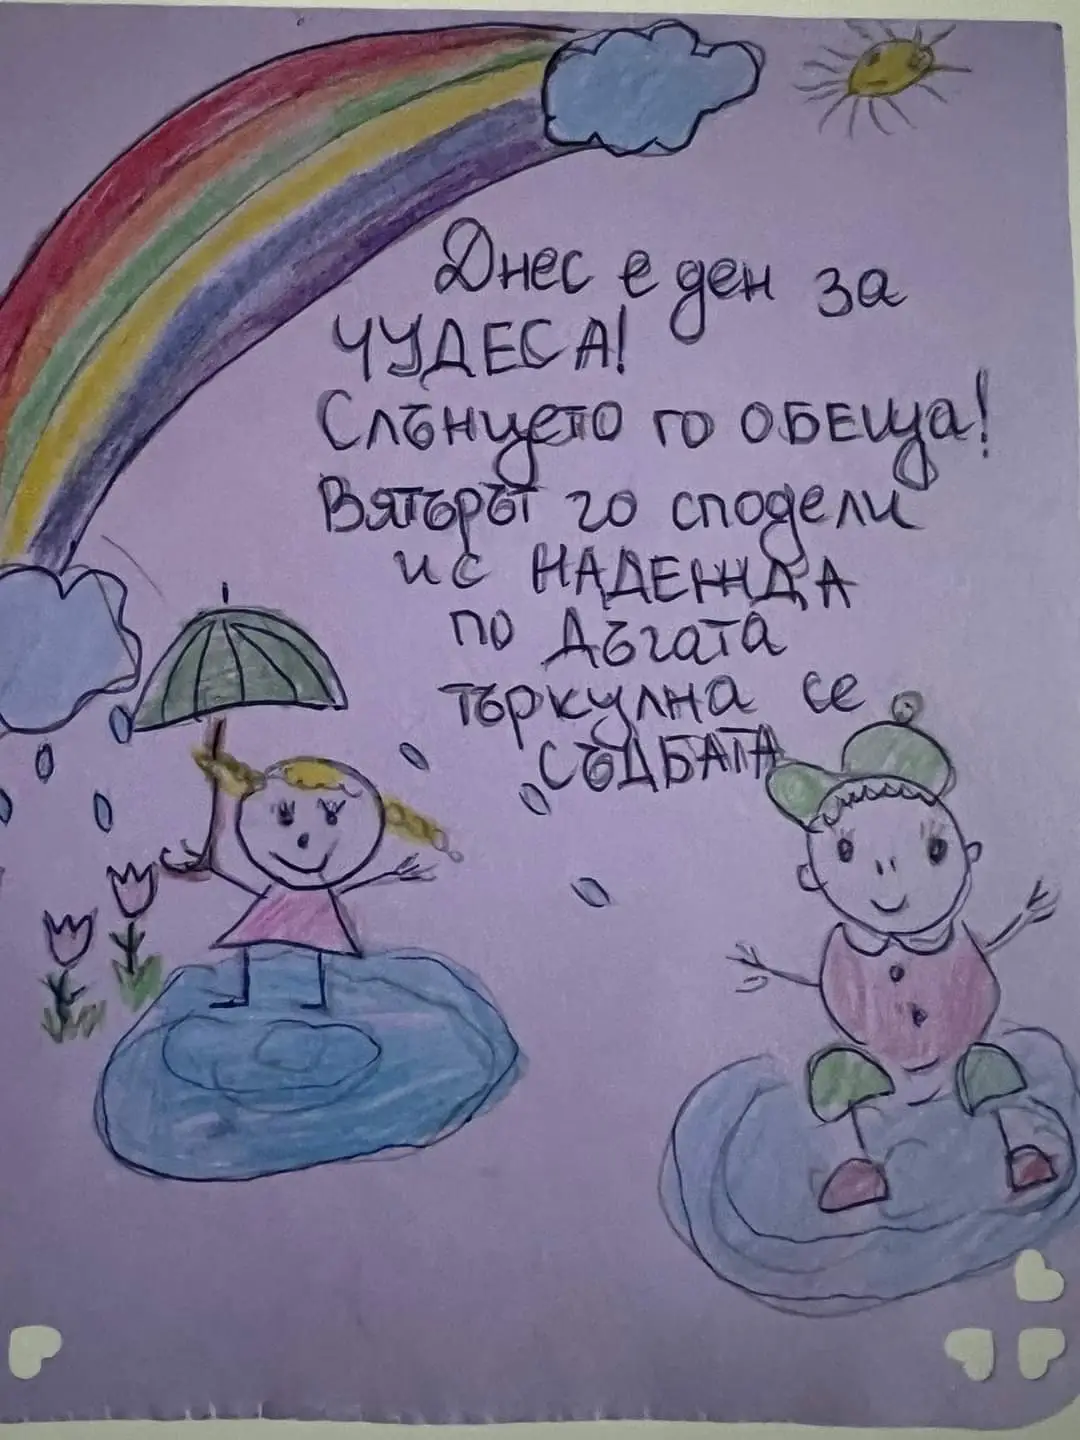 Днес е ден за
ЧУДЕСА!
Слънцето го ОБЕЩа!
Вятърът го сподели
и с НАДЕЖДА
по Дъгата
търкулна се
СЪДБАТА